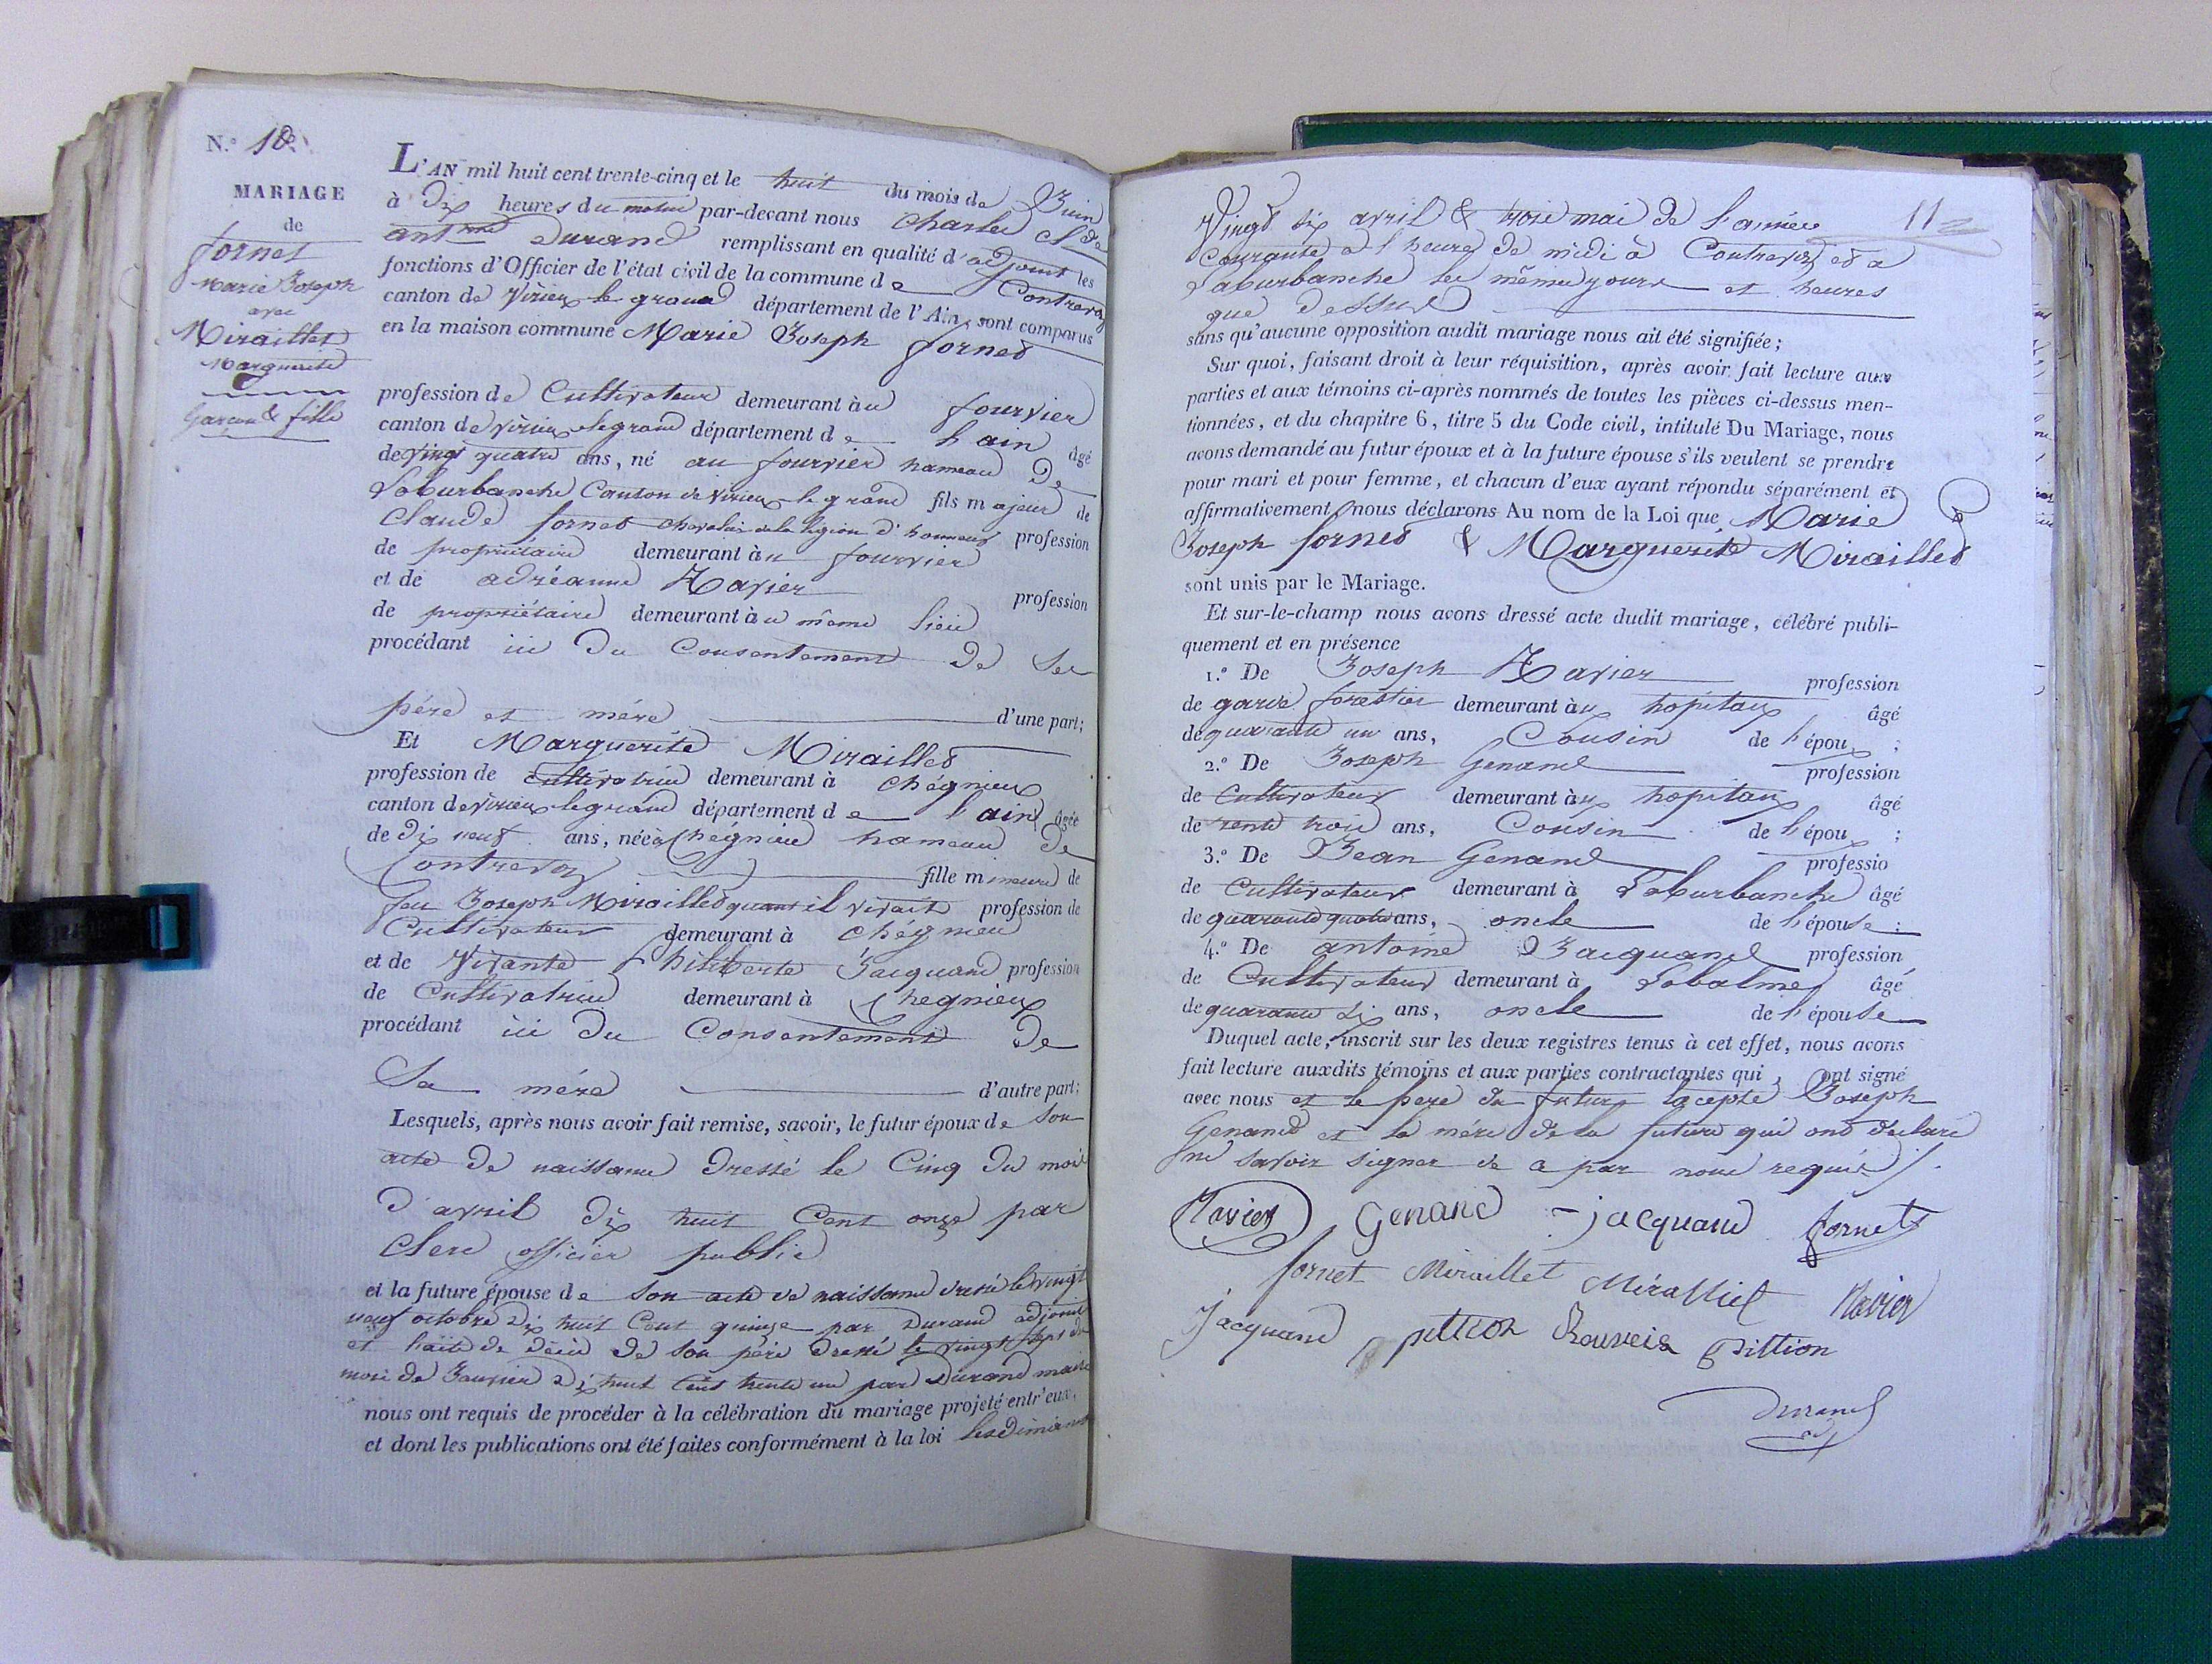 N.o 10
MARIAGE
de
fornet
Marie Joseph
avec
Miraillet
Marguerite
Garcon & fille
L'AN mil huit cent trente-cinq et le huit du mois de Juin
à dix heures du matin par-devant nous Charles Cl.de
Durand remplissant en qualité d'adjoint les
fonctions d'Officier de l'état civil de la commune de Contrevoz
canton de Virieu le grand département de l'Ain, sont comparus
en la maison commune Marie Joseph fornet
profession de Cultivateur demeurant àu fourvier
canton de Virieu legrand département de lain âgé
de vingt quatre ans, né au fourvier hameau de
Laburbanche Canton de Virieu le grand fils majeur de
Claude fornet chevalier de la légion d'honneur profession
de propriétaire demeurant àu fourvier
et de adréanne Xavier profession
de propriétaire demeurant àu même lieu
procédant ici du Consentement de Ses
père et mère d'une part;
Et Marguerite Miraillet
profession de cultivatrice demeurant à chégnieux
canton de Virieux legrand département de lain âgée
de dix neuf ans, née à Chégnieu hameau de
Contrevoz fille mineure de
feu Joseph Miraillet quant il vivait profession de
Cultivateur demeurant à chégnieu
et de Vivante philiberte Jacquand profession
de Cultivatrice demeurant à Chegnieux
procédant ici du Consentement de
Sa mère d'autre part;
Lesquels, après nous avoir fait remise, savoir, le futur époux de Son
acte de naissance dressé le Cinq du mois
d'avril dix huit Cent onze par
Clerc officier public
et la future épouse de Son acte de naissance dressé le vingt
neuf octobre dix huit Cent quinze par Durand adjoint
et l'acte de décès de son père dressé le vingt sept du
mois de Janvier dix huit Cent trente un par Durand maire
nous ont requis de procéder à la célébration du mariage projeté entr'eux,
et dont les publications ont été faites conformément à la loi les dimanches
11
Vingt six avril & trois mai de l'année
Courante a l'heure de midi à Contrevoz et a
Laburbanche les même jours et heures
que dessus
sans qu'aucune opposition audit mariage nous ait été signifiée;
Sur quoi, faisant droit à leur réquisition, après avoir fait lecture aux
parties et aux témoins ci-après nommés de toutes les pièces ci-dessus men-
tionnées, et du chapitre 6, titre 5 du Code civil, intitulé Du Mariage, nous
avons demandé au futur époux et à la future épouse s'ils veulent se prendre
pour mari et pour femme, et chacun d'eux ayant répondu séparément et
affirmativement, nous déclarons Au nom de la Loi que Marie
Joseph fornet & Marguerite Miraillet
sont unis par le Mariage.
Et sur-le-champ nous avons dressé acte dudit mariage, célébré publi-
quement et en présence
1.o De Joseph Xavier profession
de garde forestier demeurant àux hopitaux âgé
de quarante un ans, Cousin de lépoux;
2.o De Joseph Genand profession
de Cultivateur demeurant àux hopitaux âgé
de trente trois ans, Cousin de lépoux;
3.o De Jean Genand professio
de Cultivateur demeurant à Laburbanche âgé
de quarante quatre ans, oncle de lépouse;
4.o De antoine Jacquand profession
de Cultivateur demeurant à Labalme âgé
de quarante six ans, oncle de lépouse
Duquel acte, inscrit sur les deux registres tenus à cet effet, nous avons
fait lecture auxdits témoins et aux parties contractantes qui ont signé
avec nous et le père du futur excepté Joseph
Genand et la mère de la future qui ont déclaré
ne savoir signer de a par nous requis
Xavier Genand jacquand fornet
fornet Miraillet Miralliet Xavier
Jacquand pittion Rouveis Pittion
Durand